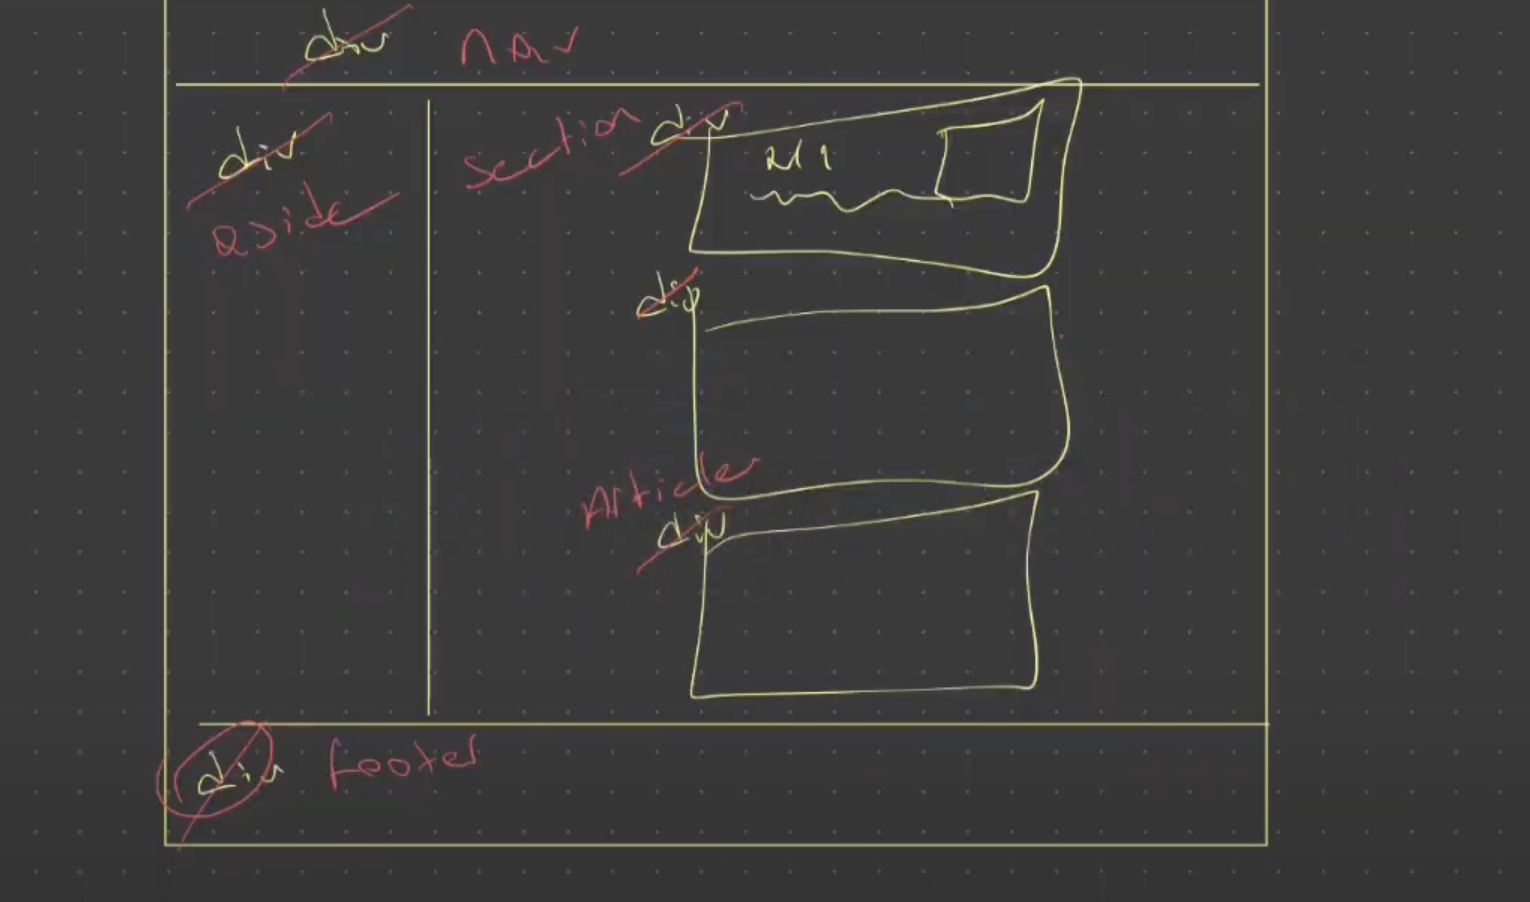 div nav
div
aside
section div
div
Article
div
div footer